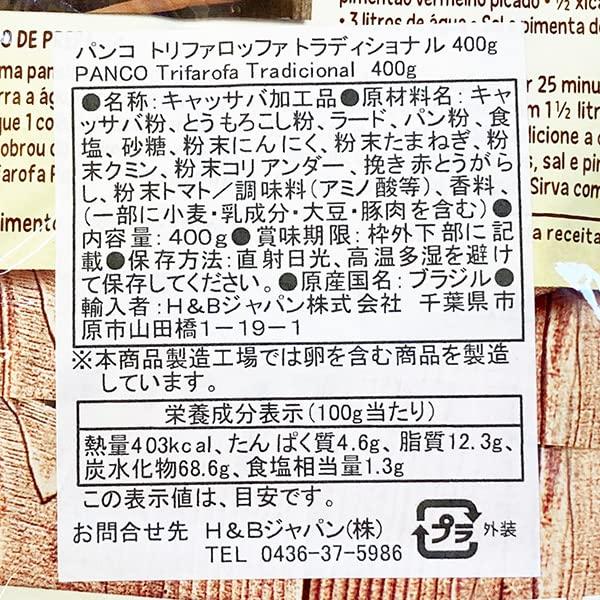 pimentão vermelho picado • ½ xíc
• 3 litros de água • Sal e pimenta do
O DE PRE
パンコ トリファロッファ トラディショナル 400g
PANCO Trifarofa Tradicional 400g
●名称：キャッサバ加工品●原材料名：キャ
ッサバ粉、とうもろこし粉、ラード、パン粉、食
塩、砂糖、粉末にんにく、粉末たまねぎ、粉
末クミン、粉末コリアンダー、挽き赤とうがら
し、粉末トマト／調味料（アミノ酸等）、香料、
（一部に小麦・乳成分・大豆・豚肉を含む）●
内容量：400g●賞味期限：枠外下部に記
載●保存方法：直射日光、高温多湿を避け
て保存してください。●原産国名：ブラジル●
輸入者：H&Bジャパン株式会社 千葉県市
原市山田橋1－19－1
※本商品製造工場では卵を含む商品を製造
しています。
栄養成分表示（100g当たり）
熱量403kcal、たんぱく質4.6g、脂質12.3g、
炭水化物68.6g、食塩相当量1.3g
この表示値は、目安です。
お問合せ先 H&Bジャパン（株）
TEL 0436-37-5986
プラ 外装
ma pan
rra a ág
que 1 co
obrou d
ifarofa P
pimento
r 25 minu
m 1½ litr
dicione a
s, sal e pi
Sirva com
a receita